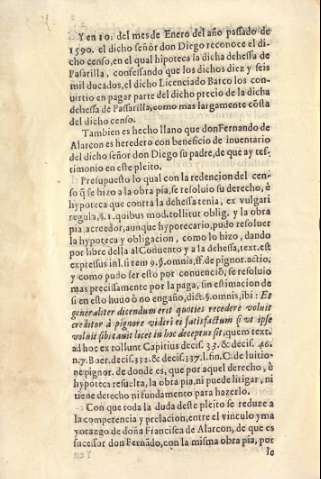 Y en 10. del mes de Enero del año passado de
1590. el dicho señor don Diego reconoce el di-
cho censo, en el qual hipoteca la dicha dehessa de
Pasarilla, confessando que los dichos diez y seis
mil ducados, el dicho Licenciado Barco los con-
uirtio en pagar parte del dicho precio de la dicha
dehessa de Passarilla, como mas largamente cõsta
del dicho censo.
Tambien es hecho llano que don Fernando de
Alarcon es heredero con beneficio de inuentario
del dicho señor don Diego su padre, de que ay tes-
timonio en este pleito.
Presupuesto lo qual con la redencion del cen-
so q̃ se hizo a la obra pia, se resoluio su derecho, è
hypoteca que contra la dehessa tenia, ex vulgari
regula, §. 1. quibus mod. tollitur oblig. y la obra
pia acreedor, aunque hypotecario, pudo resoluer
la hypoteca y obligacion, como lo hizo, dando
por libre della al Cõuento y a la dehessa, text. est
expressus in l. si tem 9. §. omnis, ff. de pignor. actio,
y como pudo ser esto por conuenciõ, se resoluio
mas precisamente por la paga, sin estimacion de
si en esto huuo ò no engaño, dict. §. omnis, ibi: Et
generaliter dicendum erit quoties recedere voluit
creditor à pignore videri ei satisfactum si vt ipse
voluit sibi cauit licet in hoc deceptus sit, quem text.
ad hoc ex tollunt Capitius decis. 35. & decis. 46.
n. 7. Boer. decis. 332. & decis. 337. l. fin. C. de luitio-
ne pignor. de donde es, que por aquel derecho, è
hypoteca resuelta, la obra pia, ni puede litigar, ni
tiene derecho ni fundamento para hazerlo.
Con que toda la duda deste pleito se reduze a
la competencia y prelacion, entre el vinculo y ma
yorazgo de doña Francisca de Alarcon, de que es
sucessor don Fernãdo, con la misma obra pia, por